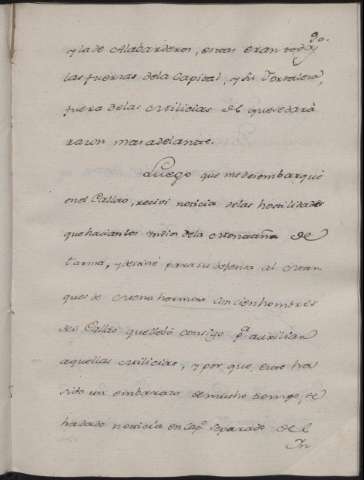 90.
y la de Alabarderos, estas eran todas
las fuerzas dela Capital, y su Fortaleza,
fuera delas Milicias de que se dará
razon mas adelante.
Luego que me desembarqué
en el Callao, recivi noticia delas hostilidades
que hacian los Indios dela Montaña de
Tarma, y destiné para su defensa al Mar
ques de Mena hermosa con cien hombres
del Callao que llevó consigo pª auxiliar
aquellas Milicias, y por que, este ha
sido un embarazo de mucho tiempo, se
hadado noticia en Capº separado del
In